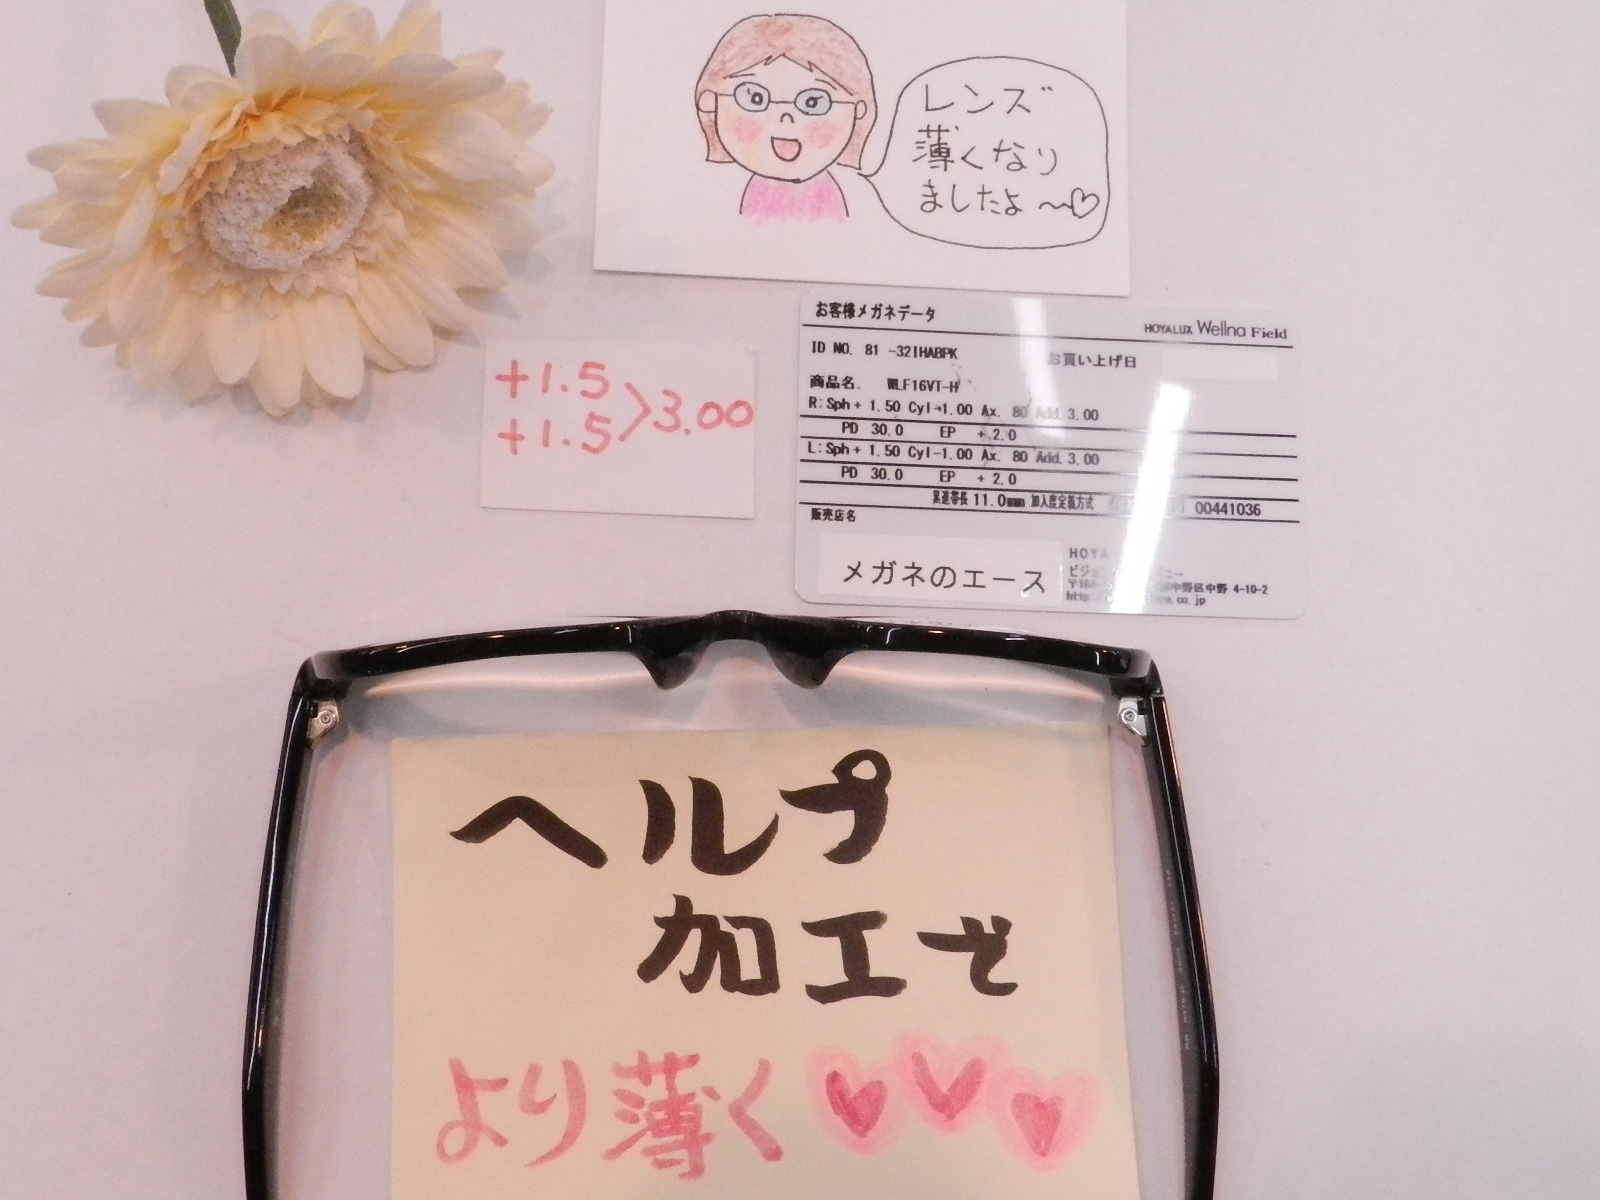 レンズ
薄くなり
ましたよ〜♡
お客様メガネデータ
HOYALUX Wellna Field
ID NO. 81 -32IHABPK お買い上げ日
商品名. WLF16VT-H
R:Sph+ 1.50 Cyl-1.00 Ax. 80 Add.3.00
PD 30.0 EP + 2.0
L:Sph+ 1.50 Cyl-1.00 Ax. 80 Add.3.00
PD 30.0 EP + 2.0
累進帯長 11.0mm 加入度定義方式 00441036
販売店名
メガネのエース
HOYA
中野区中野 4-10-2
.co.jp
+1.5
+1.5>3.00
ヘルプ
加工で
より薄く